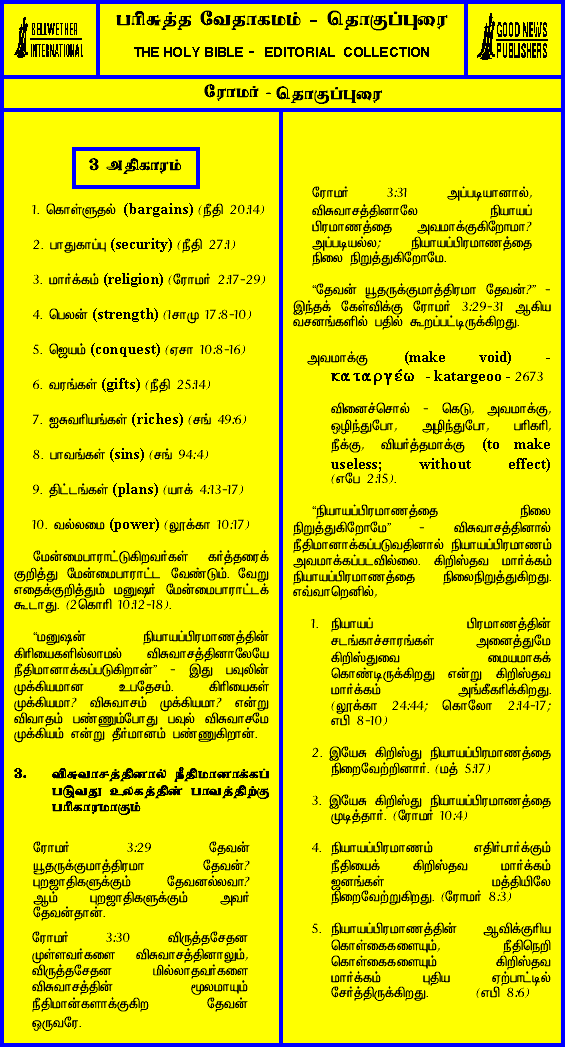 BELLWETHER
INTERNATIONAL
பரிசுத்த வேதாகமம் - தொகுப்புரை
THE HOLY BIBLE - EDITORIAL COLLECTION
GOOD NEWS
PUBLISHERS
ரோமர் - தொகுப்புரை
3 அதிகாரம்
1. கொள்ளுதல் (bargains) (நீதி 20:14)
2. பாதுகாப்பு (security) (நீதி 27:1)
3. மார்க்கம் (religion) (ரோமர் 2:17-29)
4. பெலன் (strength) (1சாமு 17:8-10)
5. ஜெயம் (conquest) (ஏசா 10:8-16)
6. வரங்கள் (gifts) (நீதி 25:14)
7. ஐசுவரியங்கள் (riches) (சங் 49:6)
8. பாவங்கள் (sins) (சங் 94:4)
9. திட்டங்கள் (plans) (யாக் 4:13-17)
10. வல்லமை (power) (லூக்கா 10:17)
மேன்மைபாராட்டுகிறவர்கள் கர்த்தரைக்
குறித்து மேன்மைபாராட்ட வேண்டும். வேறு
எதைக்குறித்தும் மனுஷர் மேன்மைபாராட்டக்
கூடாது. (2கொரி 10:12-18).
“மனுஷன் நியாயப்பிரமாணத்தின்
கிரியைகளில்லாமல் விசுவாசத்தினாலேயே
நீதிமானாக்கப்படுகிறான்” - இது பவுலின்
முக்கியமான உபதேசம். கிரியைகள்
முக்கியமா? விசுவாசம் முக்கியமா? என்று
விவாதம் பண்ணும்போது பவுல் விசுவாசமே
முக்கியம் என்று தீர்மானம் பண்ணுகிறான்.
3. விசுவாசத்தினால் நீதிமானாக்கப்
படுவது உலகத்தின் பாவத்திற்கு
பரிகாரமாகும்
ரோமர் 3:29 தேவன்
யூதருக்குமாத்திரமா தேவன்?
புறஜாதிகளுக்கும் தேவனல்லவா?
ஆம் புறஜாதிகளுக்கும் அவர்
தேவன்தான்.
ரோமர் 3:30 விருத்தசேதன
முள்ளவர்களை விசுவாசத்தினாலும்,
விருத்தசேதன மில்லாதவர்களை
விசுவாசத்தின் மூலமாயும்
நீதிமான்களாக்குகிற தேவன்
ஒருவரே.
ரோமர் 3:31 அப்படியானால்,
விசுவாசத்தினாலே நியாயப்
பிரமாணத்தை அவமாக்குகிறோமா?
அப்படியல்ல; நியாயப்பிரமாணத்தை
நிலை நிறுத்துகிறோமே.
“தேவன் யூதருக்குமாத்திரமா தேவன்?” -
இந்தக் கேள்விக்கு ரோமர் 3:29-31 ஆகிய
வசனங்களில் பதில் கூறப்பட்டிருக்கிறது.
அவமாக்கு (make void) -
καταργέω - katargeoo - 2673
வினைச்சொல் - கெடு, அவமாக்கு,
ஒழிந்துபோ, அழிந்துபோ, பரிகரி,
நீக்கு, வியர்த்தமாக்கு (to make
useless; without effect)
(எபே 2:15).
“நியாயப்பிரமாணத்தை நிலை
நிறுத்துகிறோமே” - விசுவாசத்தினால்
நீதிமானாக்கப்படுவதினால் நியாயப்பிரமாணம்
அவமாக்கப்படவில்லை. கிறிஸ்தவ மார்க்கம்
நியாயப்பிரமாணத்தை நிலைநிறுத்துகிறது.
எவ்வாறெனில்,
1. நியாயப் பிரமாணத்தின்
சடங்காச்சாரங்கள் அனைத்துமே
கிறிஸ்துவை மையமாகக்
கொண்டிருக்கிறது என்று கிறிஸ்தவ
மார்க்கம் அங்கீகரிக்கிறது.
(லூக்கா 24:44; கொலோ 2:14-17;
எபி 8-10)
2. இயேசு கிறிஸ்து நியாயப்பிரமாணத்தை
நிறைவேற்றினார். (மத் 5:17)
3. இயேசு கிறிஸ்து நியாயப்பிரமாணத்தை
முடித்தார். (ரோமர் 10:4)
4. நியாயப்பிரமாணம் எதிர்பார்க்கும்
நீதியைக் கிறிஸ்தவ மார்க்கம்
ஜனங்கள் மத்தியிலே
நிறைவேற்றுகிறது. (ரோமர் 8:3)
5. நியாயப்பிரமாணத்தின் ஆவிக்குரிய
கொள்கைகளையும், நீதிநெறி
கொள்கைகளையும் கிறிஸ்தவ
மார்க்கம் புதிய ஏற்பாட்டில்
சேர்த்திருக்கிறது. (எபி 8:6)